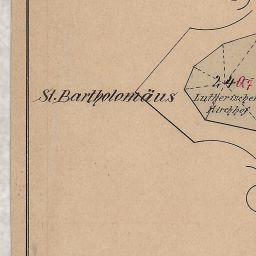 St. Bartholomäus
2,40
Lutherischer
Kirchhof